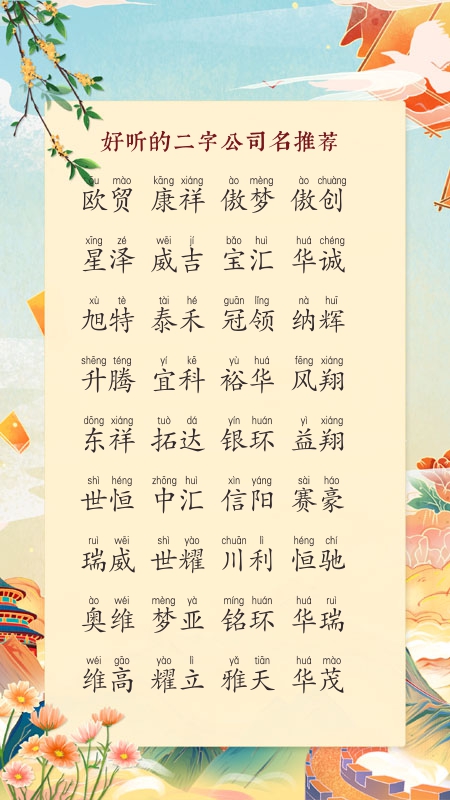 好听的二字公司名推荐
ōu mào kāng xiáng ào mèng ào chuàng
欧贸 康祥 傲梦 傲创
xīng zé wēi jí bǎo huì huá chéng
星泽 威吉 宝汇 华诚
xù tè tài hé guān lǐng nà huī
旭特 泰禾 冠领 纳辉
shēng téng yí kē yù huá fēng xiáng
升腾 宜科 裕华 风翔
dōng xiáng tuò dá yín huán yì xiáng
东祥 拓达 银环 益翔
shì héng zhōng huì xìn yáng sài háo
世恒 中汇 信阳 赛豪
ruì wēi shì yào chuān lì héng chí
瑞威 世耀 川利 恒驰
ào wéi mèng yà míng huán huá ruì
奥维 梦亚 铭环 华瑞
wéi gāo yào lì yǎ tiān huá mào
维高 耀立 雅天 华茂